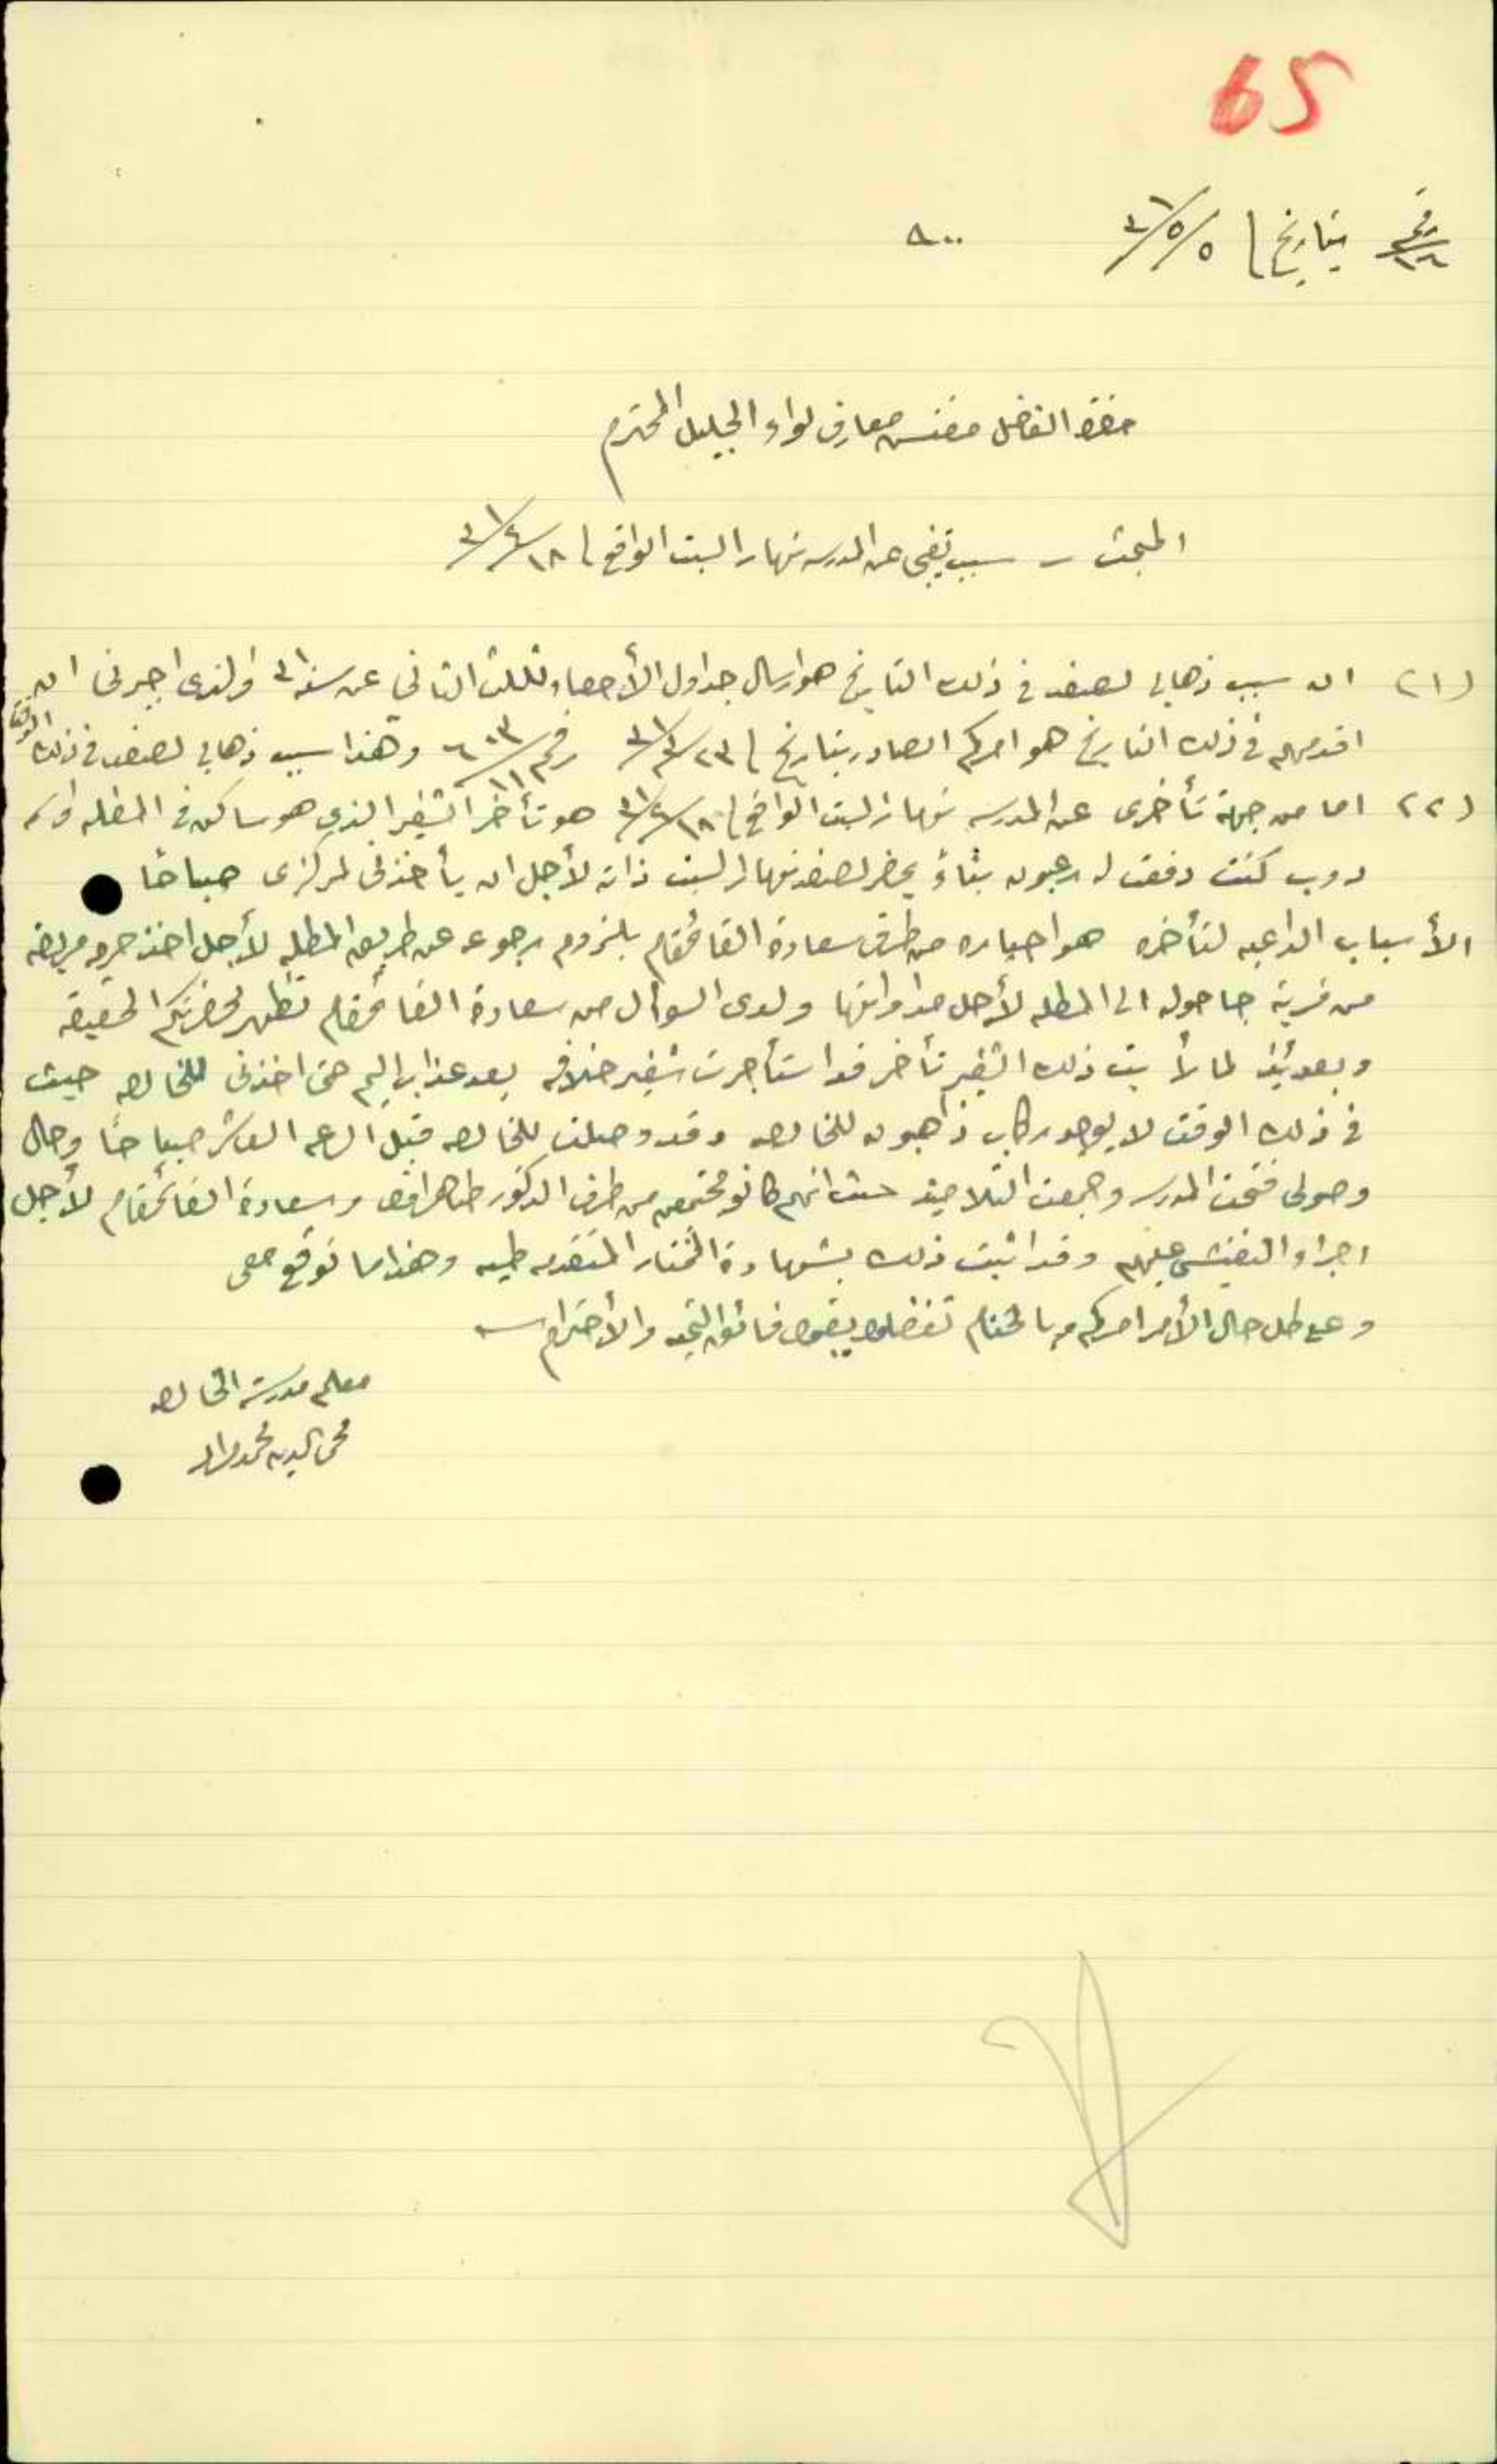 65
رقم ١٦ بتاريخ ٥/٥/٣١
حضرة الفاضل مفتش معارف لواء الجليل المحترم
المبحث - سبب تغيبي عن المدرسه نهار السبت الواقع ١٨/٤/٣١
(١) ان سبب ذهابي لصفد في ذلك التاريخ هو ارسال جداول الأحصاء للثلث الثاني عن سنة ٣١ والذي اجبرني ان
اقدمهم في ذلك التاريخ هو امركم الصادر بتاريخ ٢٣/٣/٣١ رقم وهذا سبب ذهابي لصفد في ذلك الوقت
(٢) اما من جهة تأخري عن المدرسه نهار السبت الواقع ١٨/٤/٣١ هو تأخر الشفير الذي هو ساكن في المطله
كنت دفعت له عربون بناءً يحضر لصفد نهار السبت ذاته لأجل ان يأخذني لمركزي صباحًا
الأسباب الداعيه لتأخره هو اجباره من طرف سعادة القائمقام بلزوم رجوعه عن طريق المطله لأجل اخذ حرمه مريضه
من قرية جاحولا الى المطله لأجل مداواتها ولدى السوأل من سعادة القائمقام تظهر لحضرتكم الحقيقه
وبعدئيذ لما رأيت ذلك الشفير تأخر قد استأجرت شفير خلافه بعد عذاب اليم حتى اخذني للخالصه حيث
في ذلك الوقت لا يوجد ركاب ذاهبون للخالصه وقد وصلت للخالصه قبل الساعه العاشره صباحًا وحال
وصولي فتحت المدرسه وجمعت التلاميذ حيث انهم كانو مجتمعين من طرف الدكتور طاهر افندي وسعادة القائمقام لأجل
اجراء التفتيش عليهم وقد اثبت ذلك بشهادة المختار المتقدمه طيه وهذا ما توقع معي
وعلى كل حال الأمر امركم وبالختام تفضلوا بقبول فائق التحيه والأحترام
معلم مدرسة الخالصه
محي الدين محمد